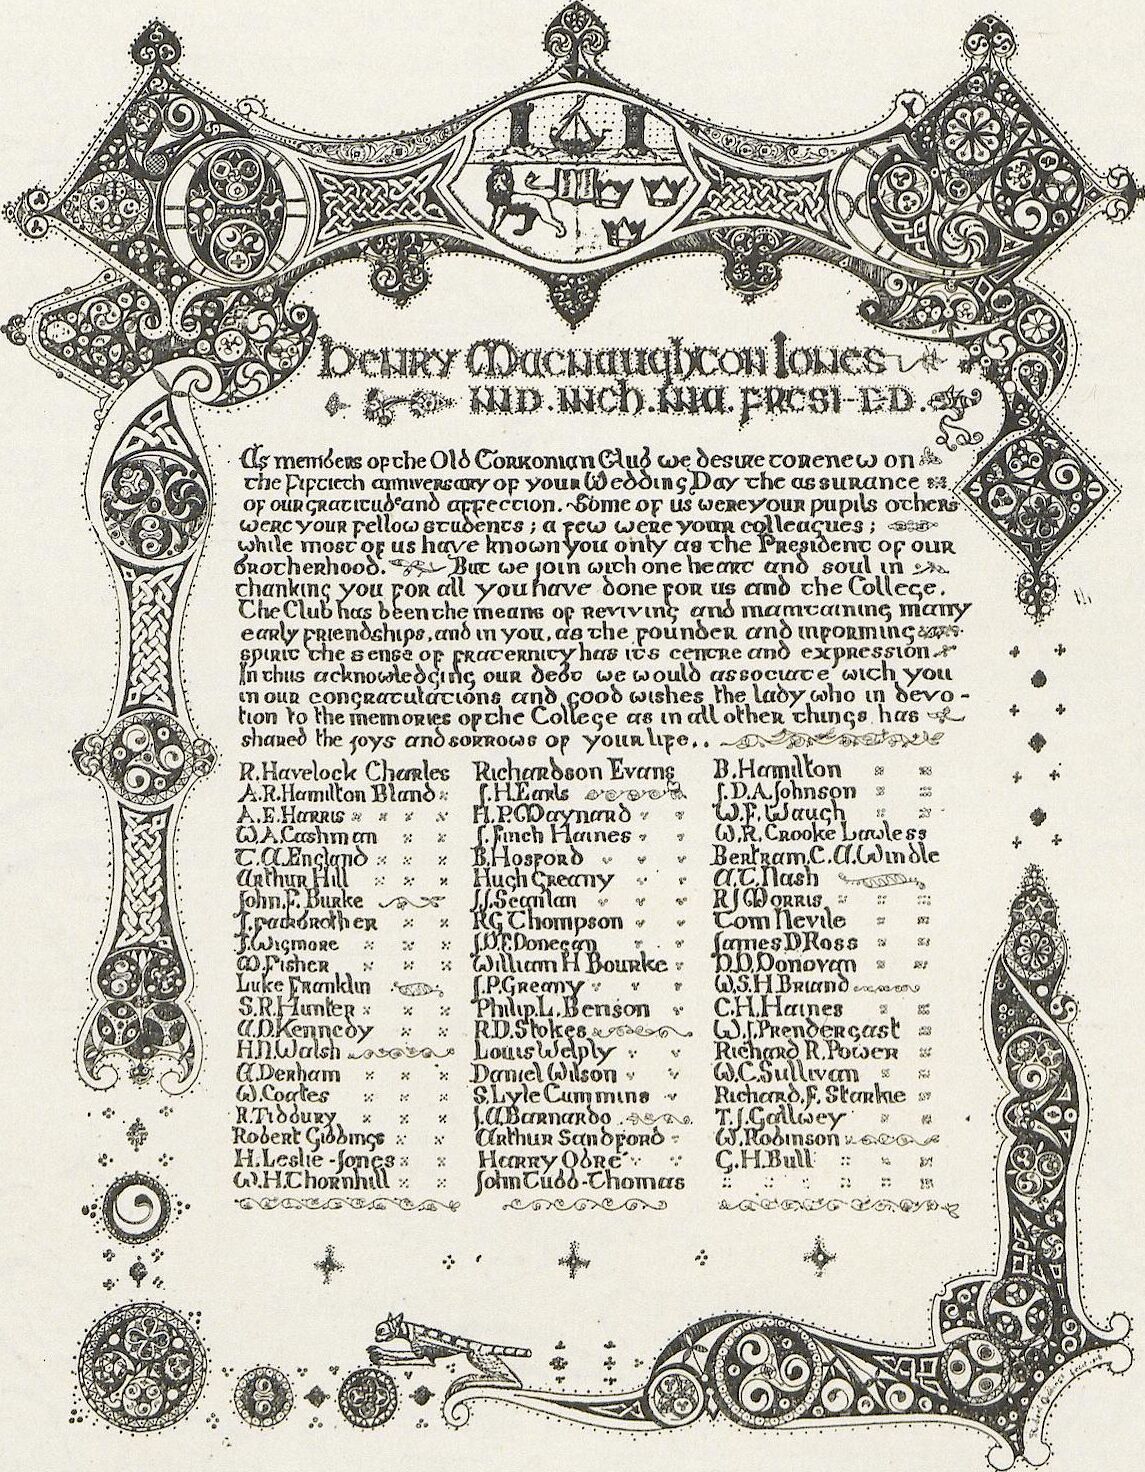 Henry Macnaughton Jones
M.D. M.Ch. M.A. F.R.C.S.I. & ED.
As members of the Old Corkonian Club we desire to renew on
the fiftieth anniversary of your Wedding Day the assurance
of our gratitude and affection. Some of us were your pupils others
were your fellow students; a few were your colleagues;
while most of us have known you only as the President of our
brotherhood. But we join with one heart and soul in
thanking you for all you have done for us and the College.
The Club has been the means of reviving and maintaining many
early friendships, and in you, as the founder and informing
spirit the sense of fraternity has its centre and expression
In thus acknowledging our debt we would associate with you
in our congratulations and good wishes the lady who in devo-
tion to the memories of the College as in all other things has
shared the joys and sorrows of your life..
R. Havelock Charles Richardson Evans B. Hamilton
A. R. Hamilton Bland J. H. Earls J. D. A. Johnson
A. E. Harris H. P. Maynard W. F. Waugh
W. A. Cashman J. Finch Haines W. R. Crooke Lawless
T. A. England B. Hosford Bertram. C. A. Windle
Arthur Hill Hugh Greany A. T. Nash
John. F. Burke J. J. Scanlan R J Morris
J. Fairbrother R G Thompson Tom Nevile
J. Wigmore J. D. F. Donegan James D Ross
M. Fisher William H Bourke D. D. Donovan
Luke Franklin J. P. Greany W. S. H. Briand
S. R. Hunter Philip. L. Benson C. H. Haines
A. D. Kennedy R. D. Stokes W. J. Prendergast
H. N. Walsh Louis Welply Richard R. Power
A. Derham Daniel Wilson W. C. Sullivan
W. Coates S. Lyle Cummins Richard. F. Starkie
R. Tidbury J. A. Barnardo T. J. Gallwey
Robert Gibbings Arthur Sandford W. Robinson
H. Leslie-Jones Harry Obré G. H. Bull
W. H. Thornhill John Tubb-Thomas
Robert Gibbings